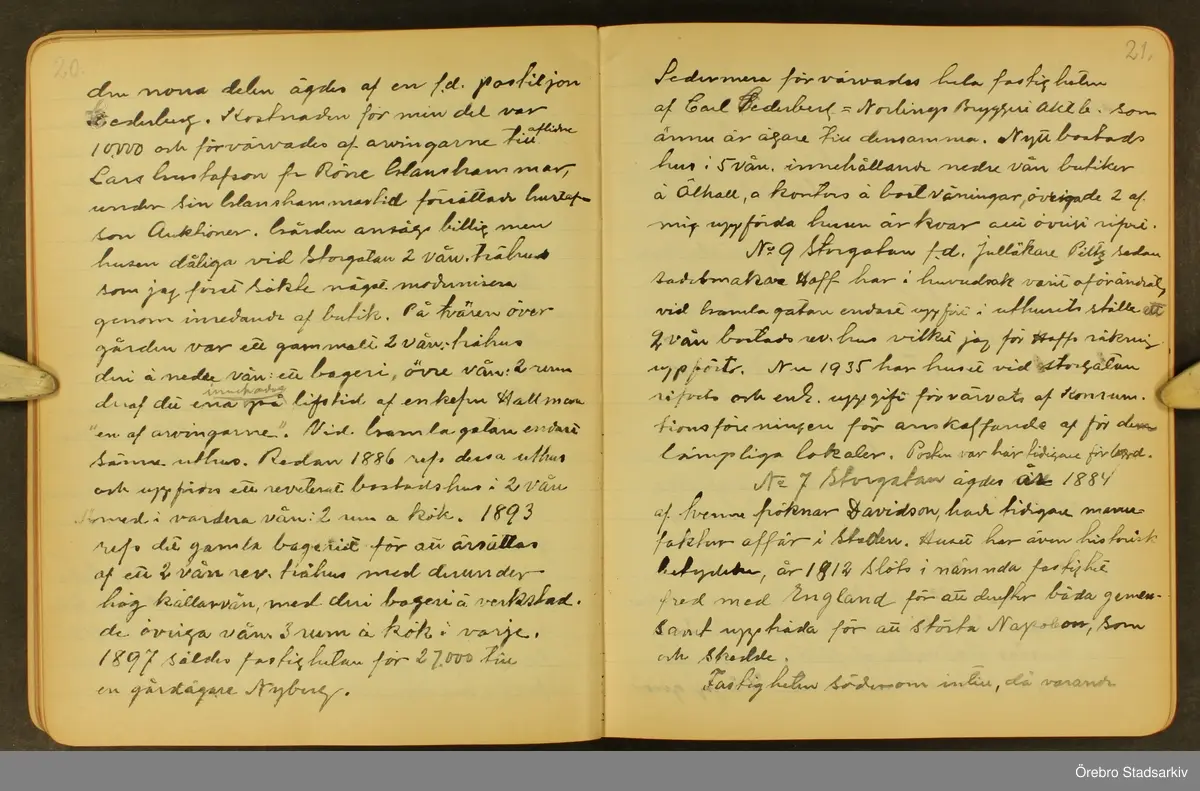 20.
den norra delen ägdes af en f.d. postiljon
Cederberg. Kostnaden för min del var
10000 och förvärvades af arvingarne till aflidne
Lars Gustafson fr Röne Glanshammar,
under sin Glanshammarstid författade Gustaf-
son Auktioner. Gården ansågs billig men
husen dåliga vid Storgatan 2 vån. trähus
som jag först sökte något modernisera
genom inredande af butik. På tvären över
gården var ett gammalt 2 vån: trähus
deri å nedre vån: ett bageri, övre vån: 2 rum
deraf det ena på lifstid af enkefru Hallman
"en af arvingarne". Vid Gamla gatan endast
sämre uthus. Redan 1886 refs dessa uthus
och uppfördes ett reveterat bostadshus i 2 vån
med i vardera vån: 2 rum a kök. 1893
refs det gamla bageriet för att ersättas
af ett 2 vån rev. trähus med derunder
hög källarvån, med deri bageri å verkstad.
de övriga vån: 3 rum å kök i varje.
1897 såldes fastigheten för 27,000 till
en gårdägare Nyberg.
21.
Sedermera förvärvades hela fastigheten
af Carl Cederberg = Norlings Bryggeri Akt b. som
ännu är ägare till densamma. Nytt bostads
hus i 5 vån. innehållande nedre vån butiker
å Ölhall, a kontors å bost våningar, övriga de 2 af
mig uppförda husen är kvar allt övrigt rifvit.
No 9 Storgatan f.d. Julläkare Piltz sedan
sadelmakare Haff har i huvudsak varit oförändrat,
vid Gamla gatan endast uppfört i uthusets ställe ett
2 vån bostads rev. hus vilket jag för Haffs räkning
uppfört. Nu 1935 har huset vid Storgatan
rifvits och enl. uppgift förvärvats af Konsum-
tionsföreningen för anskaffande af för den
lämpliga lokaler. Posten var här tidigare förlagd.
No 7 Storgatan ägdes år 1884
af tvenne fröknar Davidson, hade tidigare manu-
faktur affär i Staden. Huset har även historisk
betydelse, år 1812 slöts i nämnda fastighet
fred med England för att derefter båda gemen-
samt uppträda för att störta Napoleon, som
och skedde.
Fastigheten söder som intill, då varande
Örebro Stadsarkiv